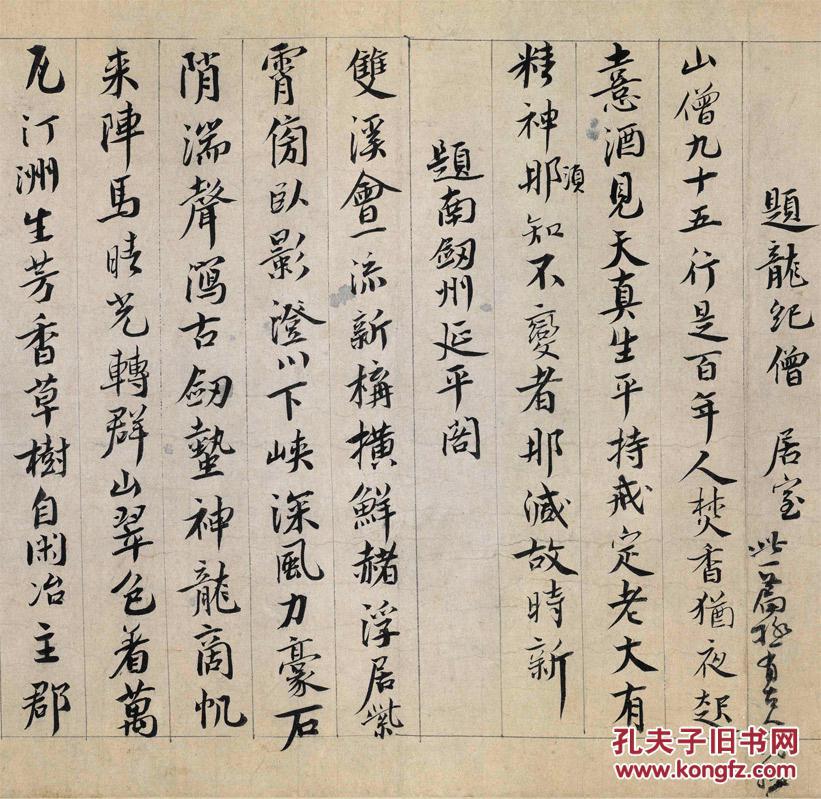 題龍紀僧居室 此一篇極有古人
山僧九十五行是百年人焚香猶夜起
憙酒見天真生平持戒定老大有
精神那須知不變者那減故時新
題南劔州延平閣
雙溪會一流新構橫鮮赭浮居紫
霄傍臥影澄川下峽深風力豪石
陗湍聲瀉古劔蟄神龍商帆
来陣馬晴光轉群山翠色着萬
瓦汀洲生芳香草樹自閑冶主郡
孔夫子旧书网
www.kongfz.com